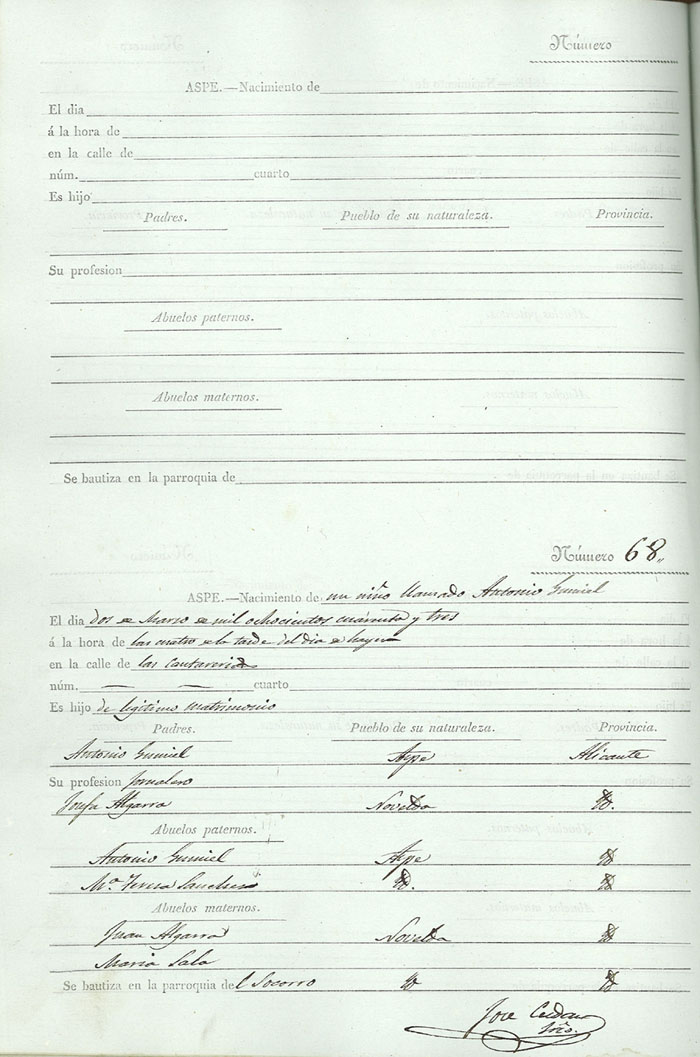 Número
ASPE.—Nacimiento de
El dia
á la hora de
en la calle de
núm. cuarto
Es hijo
Padres. Pueblo de su naturaleza. Provincia.
Su profesion
Abuelos paternos.
Abuelos maternos.
Se bautiza en la parroquia de
Número 68.
ASPE.—Nacimiento de un niño llamado Antonio Gumiel
El dia dos de Marzo de mil ochocientos cuarenta y tres
á la hora de las cuatro de la tarde del dia de hayer
en la calle de las Cantarerias
núm. — — cuarto
Es hijo de legitimo matrimonio
Padres. Pueblo de su naturaleza. Provincia.
Antonio Gumiel Aspe Alicante
Su profesion Jornalero
Josefa Algarra Novelda
Abuelos paternos.
Antonio Gumiel Aspe
Mª. Teresa Sanchez
Abuelos maternos.
Juan Algarra Novelda
Maria Sala
Se bautiza en la parroquia del Socorro